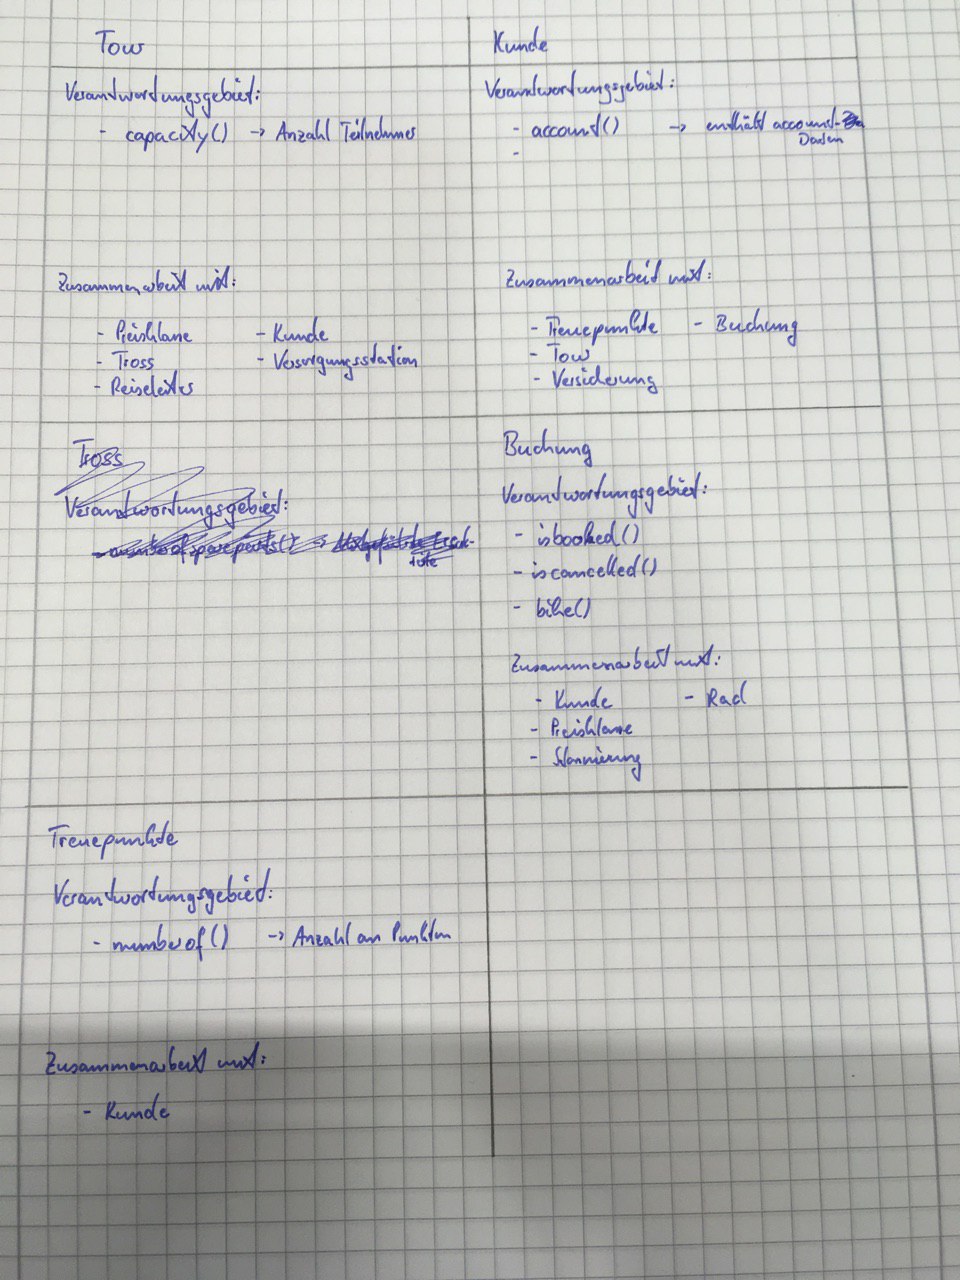 Tour
Verantwortungsgebiet:
- capacity() -> Anzahl Teilnehmer
Zusammenarbeit mit:
- Preisklasse - Kunde
- Tross - Versorgungsstation
- Reiseleiter
Kunde
Verantwortungsgebiet:
- account() -> enthält account-
Daten
-
Zusammenarbeit mit:
- Treuepunkte - Buchung
- Tour
- Versicherung
Tross
Verantwortungsgebiet:
- numberofspareparts() ->
Buchung
Verantwortungsgebiet:
- isbooked()
- iscancelled()
- bike()
Zusammenarbeit mit:
- Kunde - Rad
- Preisklasse
- Stornierung
Treuepunkte
Verantwortungsgebiet:
- numberof() -> Anzahl an Punkten
Zusammenarbeit mit:
- Kunde